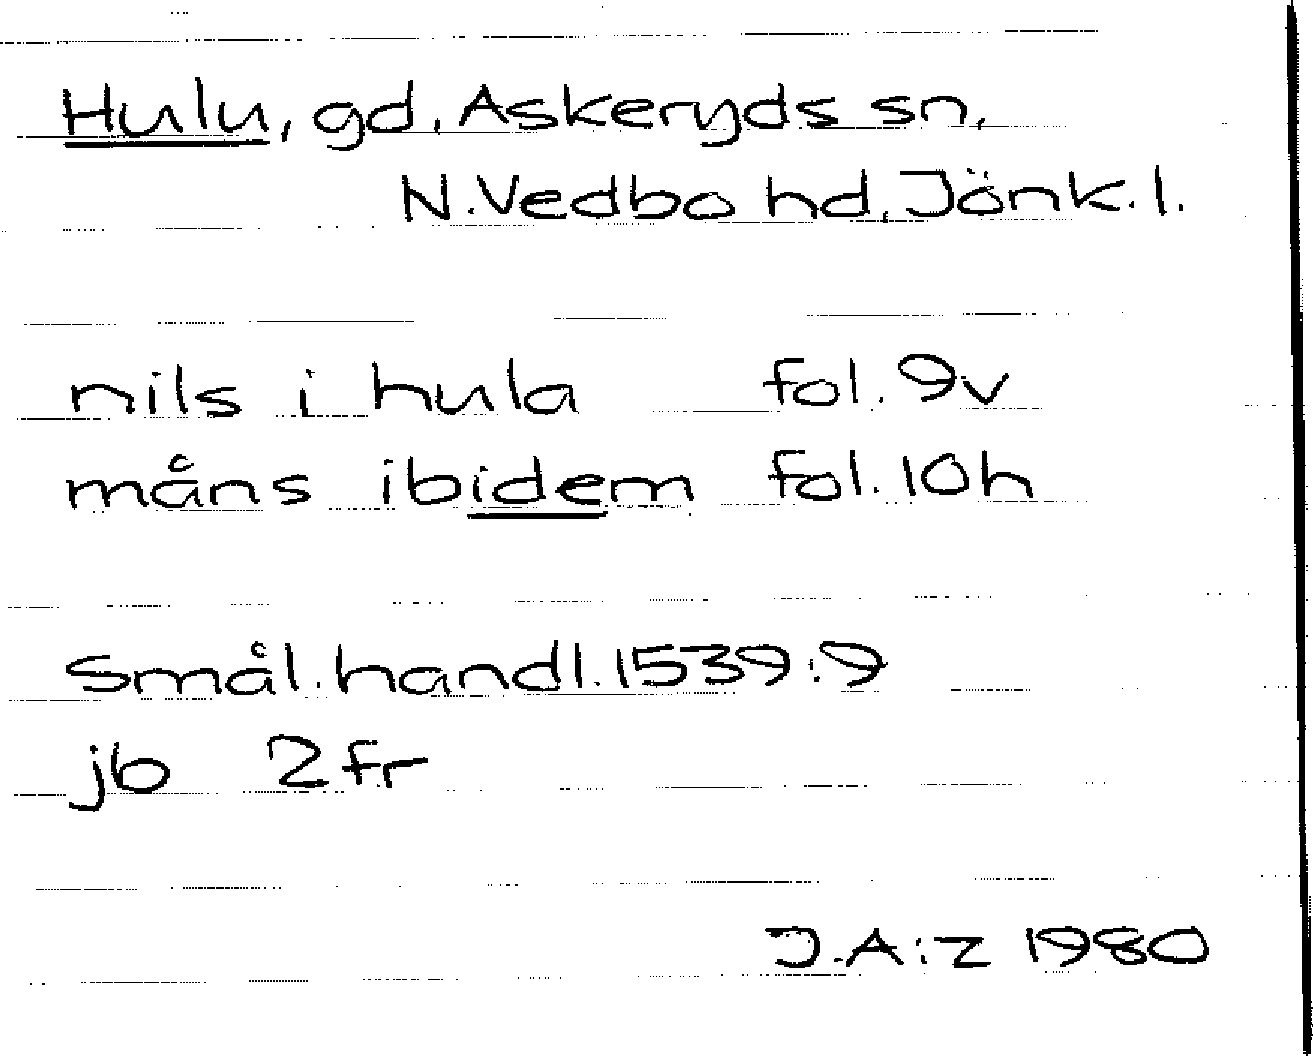 Hulu, gd, Askeryds sn,
N.Vedbo hd, Jönk.l.
nils i hula fol. 9v
måns ibidem fol. 10h
Smål.handl. 1539:9
jb 2 fr
J.A:z 1980